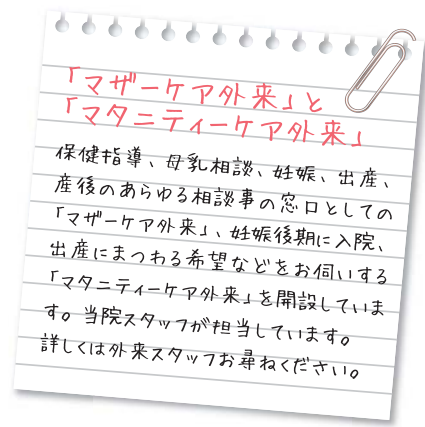 「マザーケア外来」と
「マタニティーケア外来」
保健指導、母乳相談、妊娠、出産、
産後のあらゆる相談事の窓口としての
「マザーケア外来」、妊娠後期に入院、
出産にまつわる希望などをお伺いする
「マタニティーケア外来」を開設していま
す。当院スタッフが担当しています。
詳しくは外来スタッフお尋ねください。